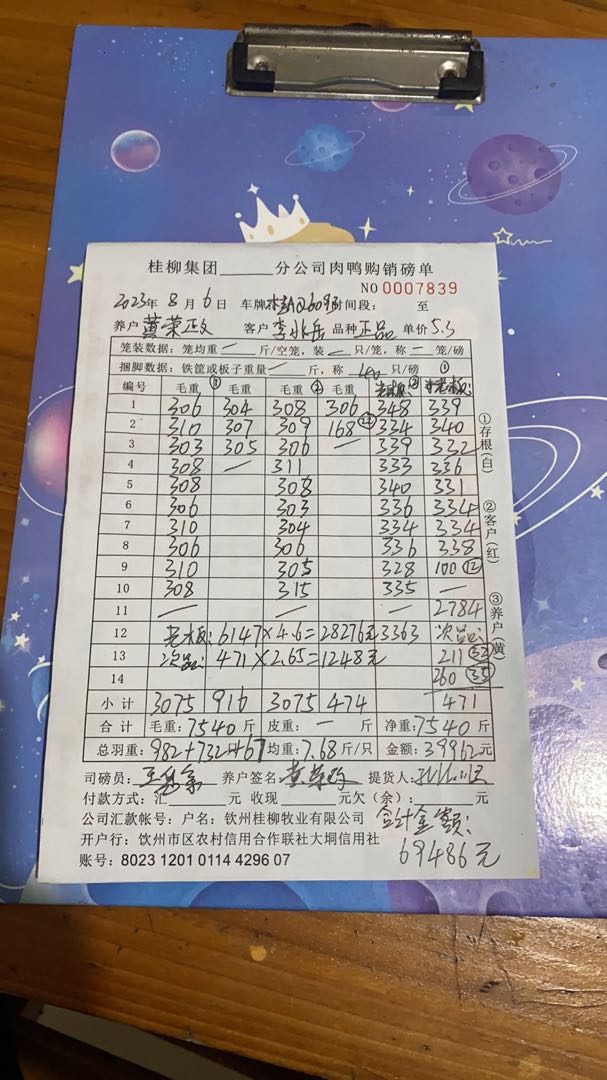 桂柳集团______分公司肉鸭购销磅单
NO 0007839
2023年 8月 6日 车牌 时间段: 至
养户 黄荣 客户 李 岳 品种 正品 单价 5.3
笼装数据: 笼均重 — 斤/空笼, 装 — 只/笼, 称 — 笼/磅
捆脚数据: 铁筐或板子重量 — 斤, 称 40 只/磅 ①
编号 毛重 ③ 毛重 毛重 ② 毛重 老水板: ②
1 306 304 308 306 348 339
2 310 307 309 168 ㉒ 334 340
3 303 305 306 — 339 332
4 308 — 311 333 336
5 308 308 340 331
6 306 303 336 334
7 310 304 334 334
8 306 306 336 338
9 310 305 328 100 ⑫
10 308 315 335 —
11 — — — 2784
12 老水板: 6147×4.6=28276元 3363 次品:
13 次品: 471×2.65=1248元 211 ㉜
14 260 ㉟
小计 3075 916 3075 474 471
合计 毛重: 7540 斤 皮重: — 斤 净重: 7540 斤
总羽重: 982+732+67 均重: 7.68斤/只 金额: 39962元
司磅员: 养户签名: 黄荣 提货人:
付款方式: 汇______元 收现______元欠(余):______元
公司汇款帐号: 户名: 钦州桂柳牧业有限公司 合计金额:
开户行: 钦州市区农村信用合作联社大垌信用社
69486元
账号: 8023 1201 0114 4296 07
①存根(白)
②客户(红)
③养户(黄)